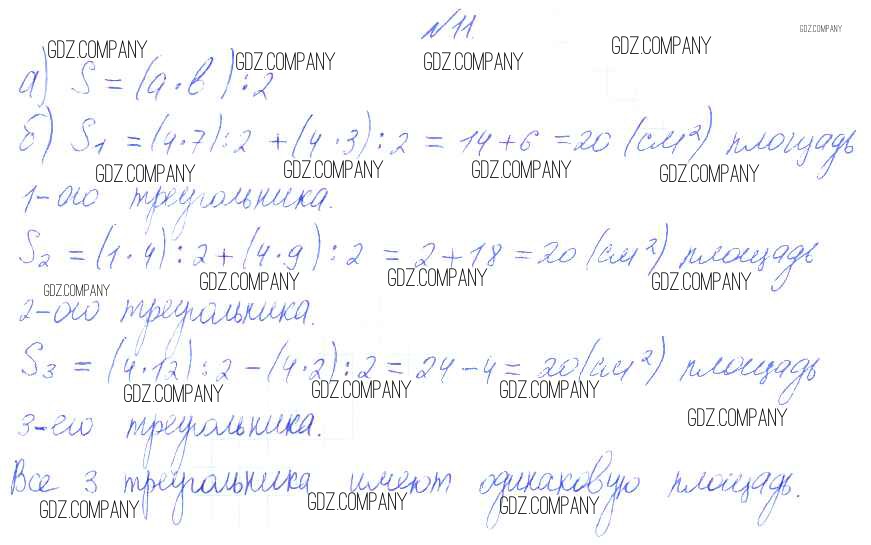 №11.
GDZ.COMPANY GDZ.COMPANY GDZ.COMPANY GDZ.COMPANY GDZ.COMPANY
а) S = (a · b) : 2
б) S₁ = (4·7) : 2 + (4·3) : 2 = 14 + 6 = 20 (см²) площадь
GDZ.COMPANY GDZ.COMPANY GDZ.COMPANY GDZ.COMPANY
1-ого треугольника.
S₂ = (1·4) : 2 + (4·9) : 2 = 2 + 18 = 20 (см²) площадь
GDZ.COMPANY GDZ.COMPANY GDZ.COMPANY GDZ.COMPANY
2-ого треугольника.
S₃ = (4·12) : 2 - (4·2) : 2 = 24 - 4 = 20 (см²) площадь
GDZ.COMPANY GDZ.COMPANY GDZ.COMPANY GDZ.COMPANY
3-его треугольника.
Все 3 треугольника имеют одинаковую площадь.
GDZ.COMPANY GDZ.COMPANY GDZ.COMPANY